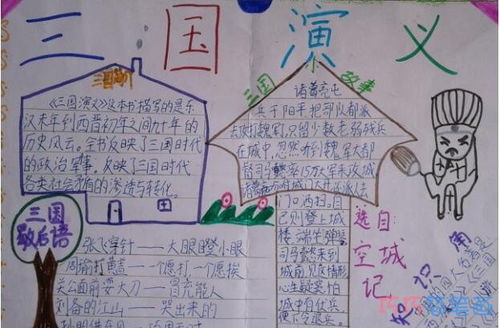 三国演义
三国简介
《三国演义》这本书描写的是东
汉末年到西晋初年之间九十年的
历史风云。全书反映了三国时代
的政治军事，反映了三国时代
各类社会矛盾的渗透与转化。
三国
歇后语
张飞穿针——大眼瞪小眼
周瑜打黄盖——一个愿打一个愿挨
关公面前耍大刀——冒充能人
刘备的江山——哭出来的
三国 故事
诸葛亮屯
兵于阳平，把部队都派
去攻打魏军，只留少数老弱残兵
在城中，忽然听到魏军大都
督司马懿率15万大军来攻城
门，洒扫。自
己则登上城
楼，端坐弹琴
司马懿来到
城前，见此情形
心生疑窦，怕
城中有伏兵
便下令退兵
选自:
空城记
知识角